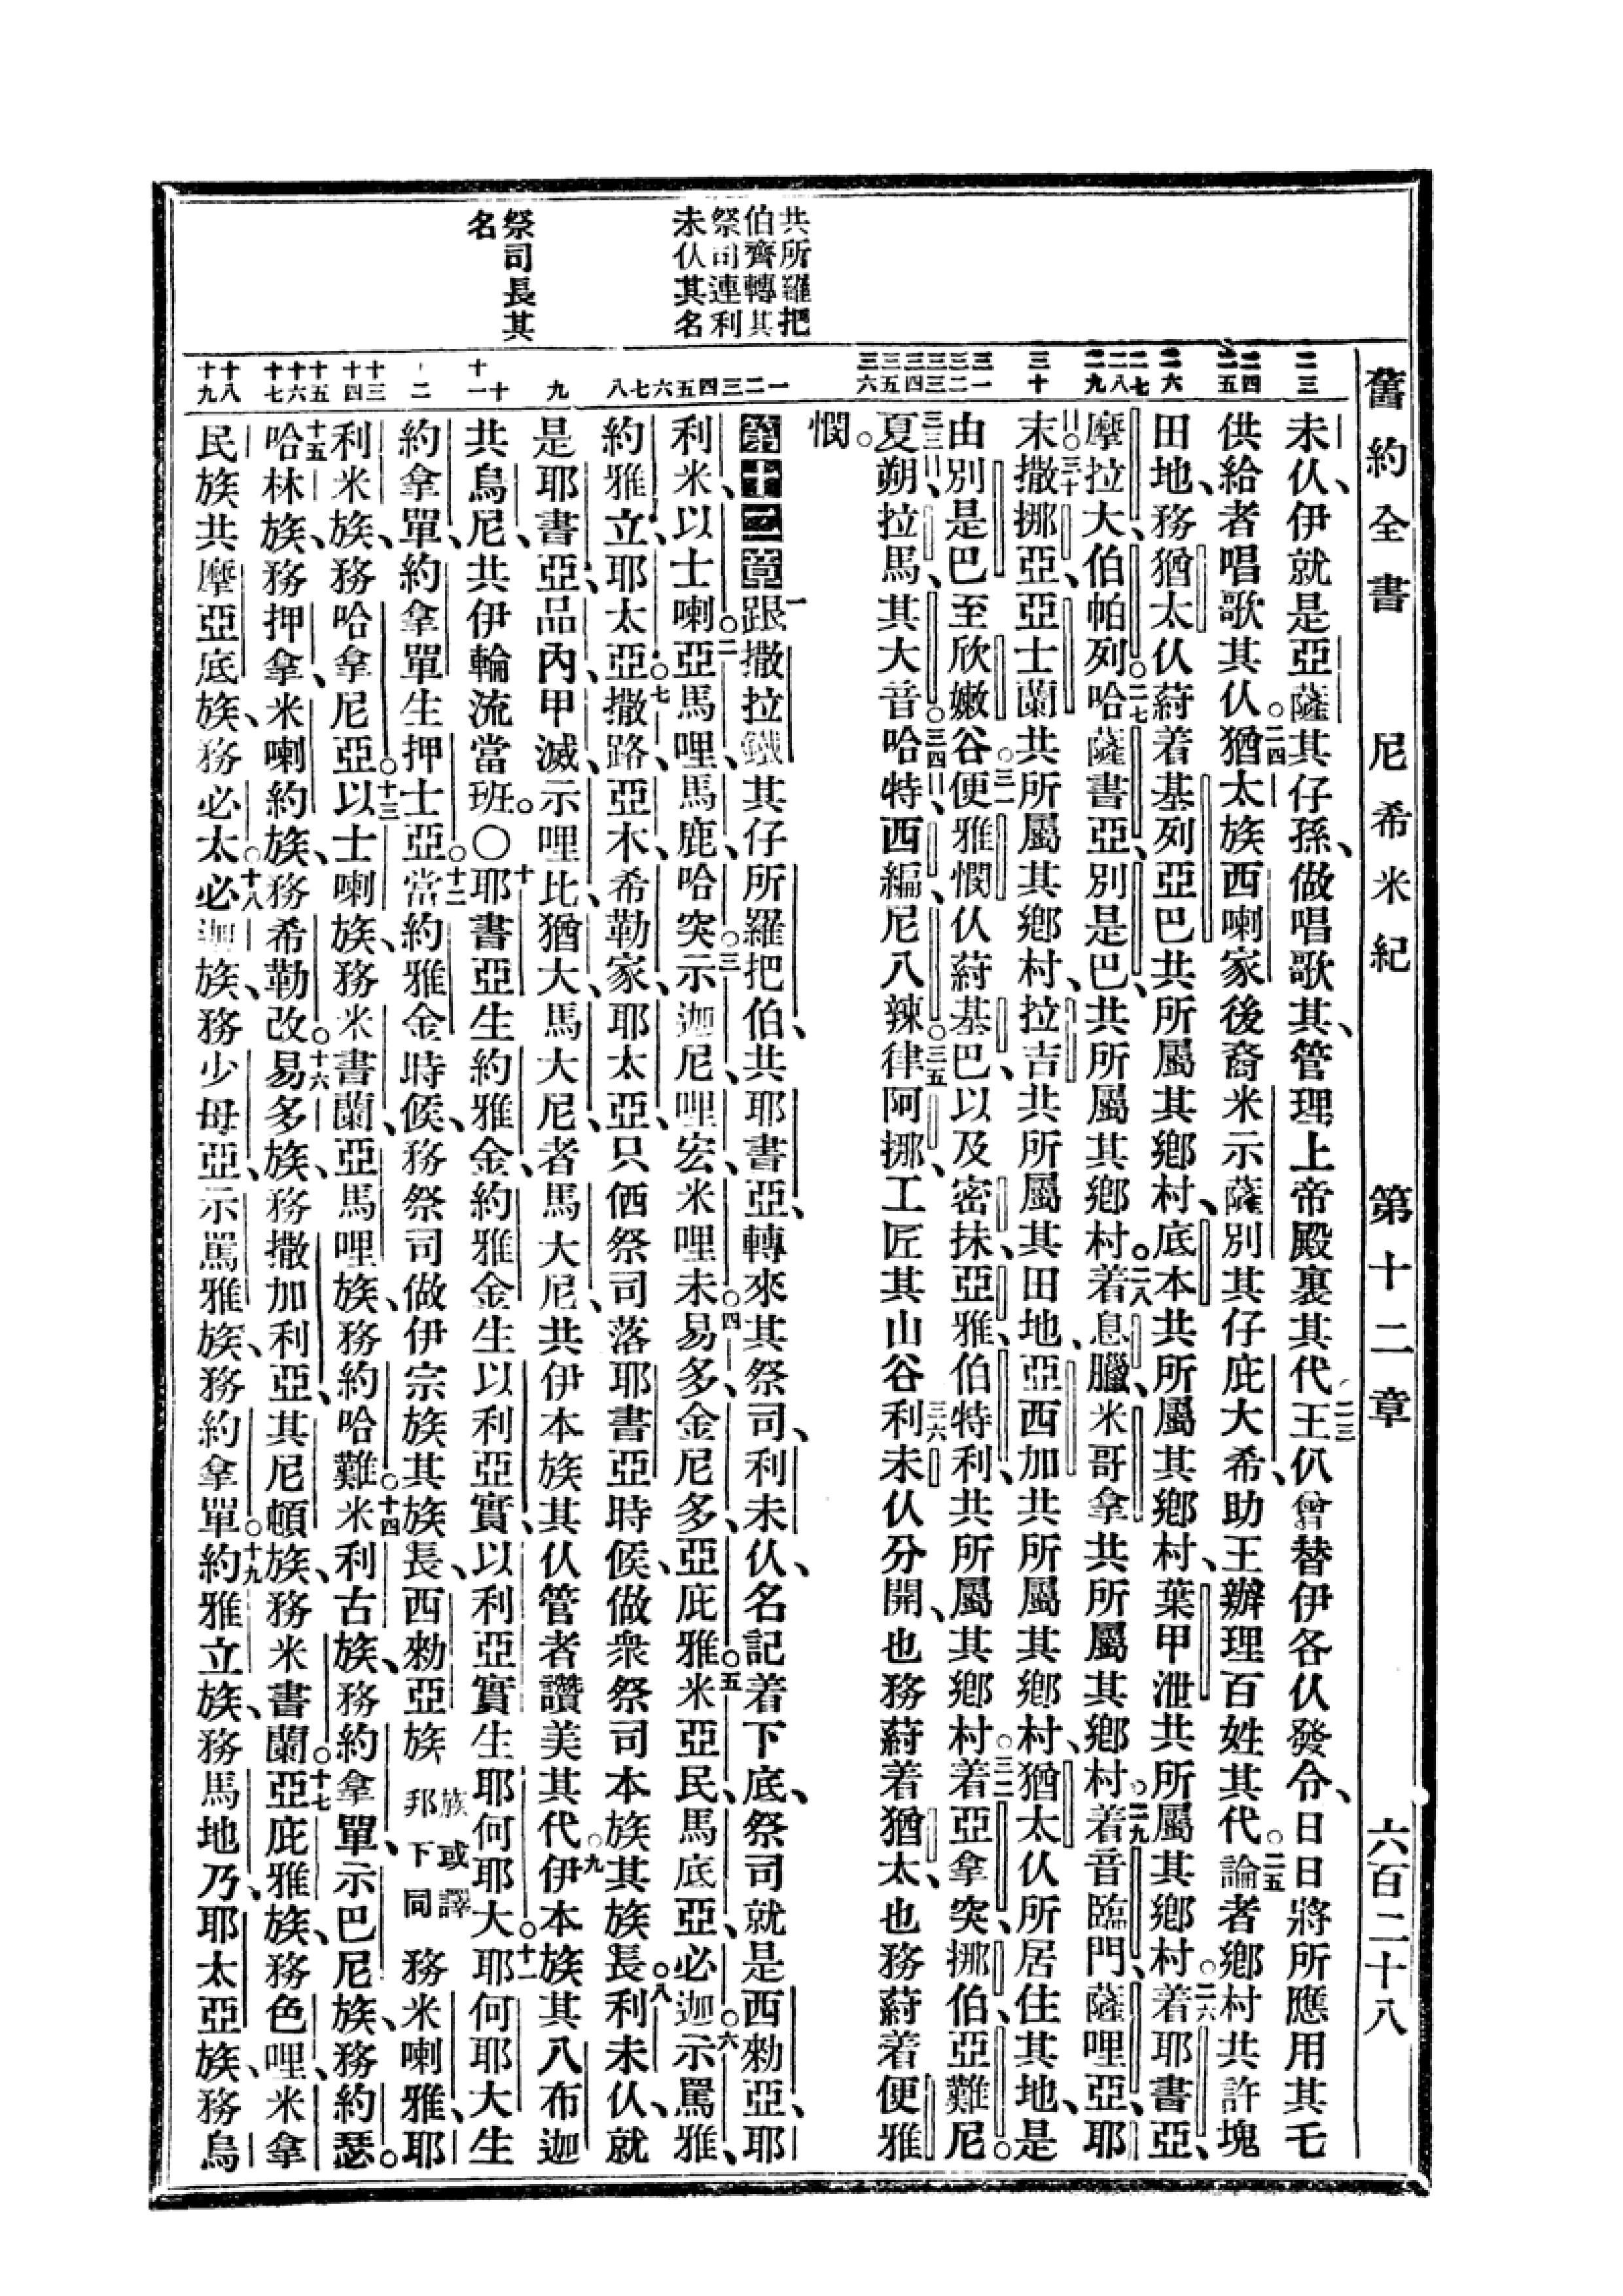 舊約全書 尼希米紀 第十二章 六百二十八
共所羅把
伯齊轉其
祭司連利
未仈其名
祭司長其
名
未仈、伊就是亞薩其仔孫、做唱歌其、管理上帝殿裏其代。二三王仈曾替伊各仈發令、日日將所應用其毛
供給者唱歌其仈。二四猶太族西喇家後裔米示薩別其仔庇大希、助王辦理百姓其代。二五論者鄉村共許塊
田地、務猶太仈蒔着基列亞巴共所屬其鄉村、底本共所屬其鄉村、葉甲泄共所屬其鄉村。二六着耶書亞、
摩拉大、伯帕列。二七哈薩書亞、別是巴、共所屬其鄉村。二八着息臘、米哥拿共所屬其鄉村。二九着音臨門、薩哩亞、耶
末。三十撒挪亞、亞士蘭共所屬其鄉村、拉吉共所屬其田地、亞西加共所屬其鄉村、猶太仈所居住其地、是
由別是巴至欣嫩谷。三一便雅憫仈蒔基巴、以及密抹、亞雅、伯特利、共所屬其鄉村。三二着亞拿突、挪伯、亞難尼。
三三夏朔、拉馬、其大音。三四哈特、西編、尼八辣。三五律、阿挪、工匠其山谷。三六利未仈分開、也務蒔着猶太、也務蒔着便雅
憫。
第十二章 一跟撒拉鐵其仔所羅把伯、共耶書亞、轉來其祭司、利未仈、名記着下底、祭司就是西勑亞、耶
利米、以士喇。二亞馬哩、馬鹿、哈突。三示迦尼、哩宏、米哩末。四易多、金尼多、亞庇雅。五米亞民、馬底亞、必迦。六示罵雅、
約雅立、耶太亞。七撒路、亞木、希勒家、耶太亞、只仫祭司落耶書亞時候、做衆祭司本族其族長。八利未仈、就
是耶書亞、品內、甲滅、示哩比、猶大、馬大尼、者馬大尼、共伊本族其仈管者讚美其代。九伊本族其八布迦
共烏尼、共伊輪流當班。〇十耶書亞生約雅金、約雅金生以利亞實、以利亞實生耶何耶大。十一耶何耶大生
約拿單、約拿單生押士亞。十二當約雅金時候、務祭司做伊宗族其族長、西勑亞族族或譯邦下同務米喇雅、耶
利米族、務哈拿尼亞。十三以士喇族、務米書蘭、亞馬哩族、務約哈難。十四米利古族、務約拿單、示巴尼族、務約瑟。
十五哈林族、務押拿、米喇約族、務希勒改。十六易多族、務撒加利亞、其尼頓族、務米書蘭。十七亞庇雅族、務色哩、米拿
民族共摩亞底族、務必太。十八必迦族、務少毋亞、示罵雅族、務約拿單。十九約雅立族、務馬地乃、耶太亞族、務烏